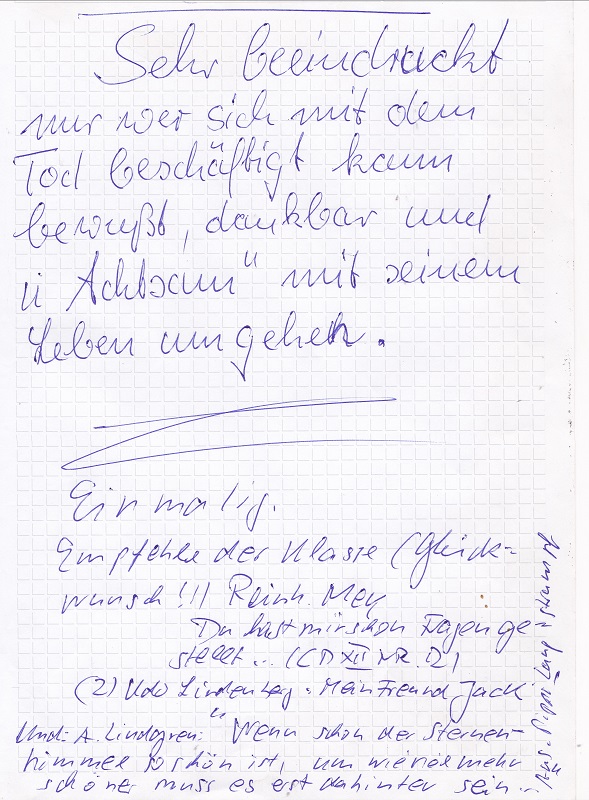 Sehr beeindruckt
nur wer sich mit dem
Tod beschäftigt kann
bewußt, dankbar und
„Achtsam“ mit seinem
Leben umgehen.
Einmalig.
Empfehle der Klasse (Glück=
wunsch!!!) Reinh. Mey
Du hast mir schon Fragen ge
stellt... (CD XII NR. 2)
(2) Udo Lindenberg: Mein Freund Jack
Und: A. Lindgren: "Wenn schon der Sternen-
himmel so schön ist, um wieviel mehr
schöner muss es erst dahinter sein...
Aus: Pippi Langstrumpf